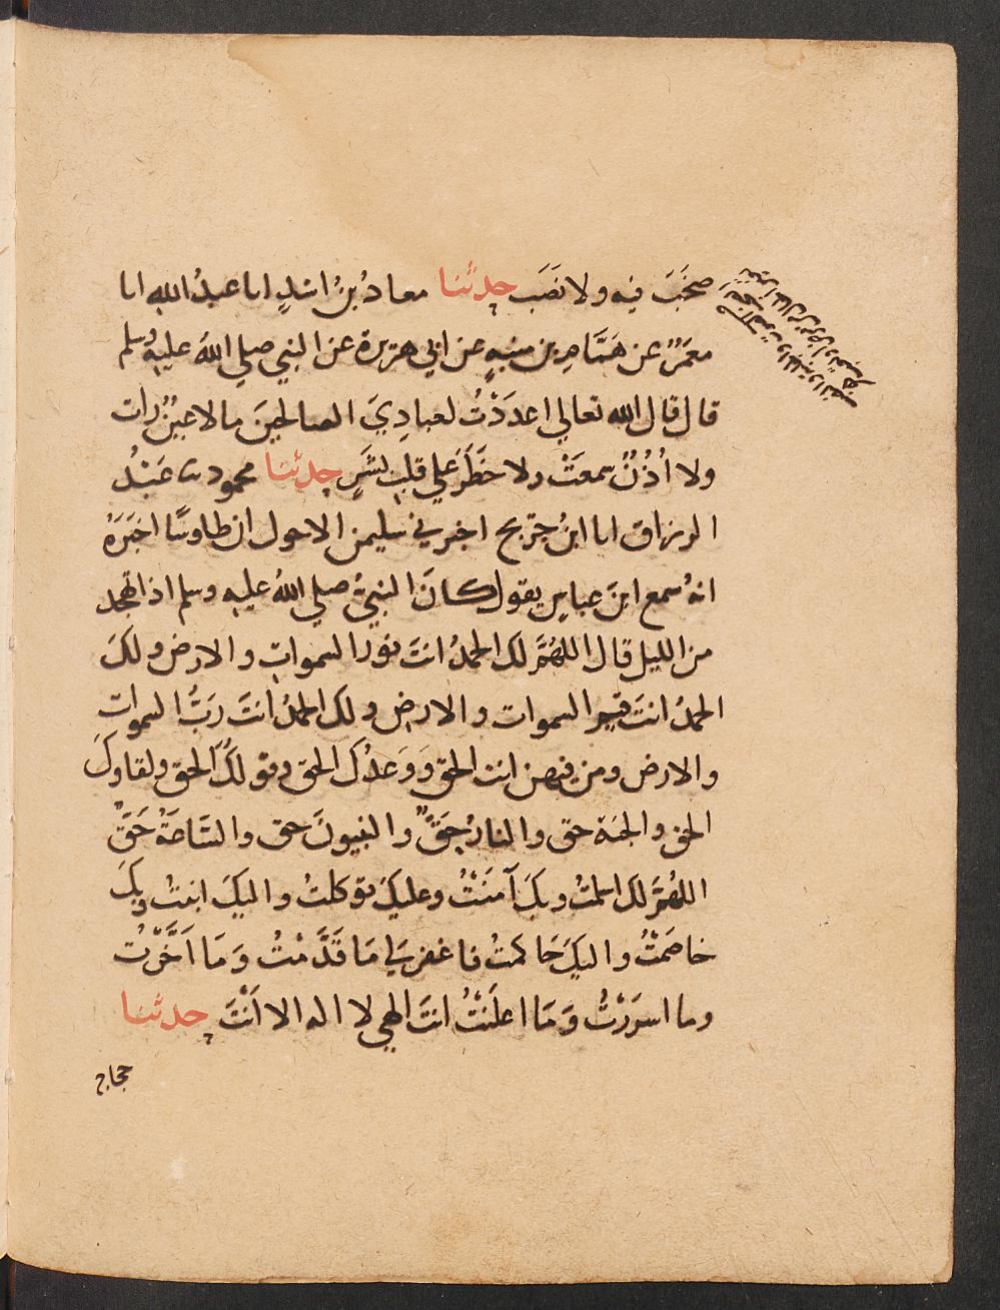 صخَبَ فيه ولا نَصَبَ حدثنا معاذُ بنُ اسَدٍ انا عبدُ الله انا
معمَرٌ عن هَمَّام بن منبهٍ عن ابي هريرة عن النبي صلي اللهُ عليه وسلم
قال قال الله تعالي اعدَدْتُ لعبادِيَ الصالحينَ ما لا عينٌ رات
ولا اُذُنٌ سمعَتْ ولا خَطَرَ علي قلبِ بشَرٍ حدثنا محمود نا عَبْدُ
الرزاق انا ابنُ جريج اخبرني سليمن الاحول ان طاوسًا اخبَرَهُ
انهُ سمع ابنَ عباسٍ يقول كانَ النبيُّ صلي اللهُ عليه وسلم اذا تهجد
من الليل قال اللهُمَّ لك الحمدُ انتَ نورُ السموات والارض ولكَ
الحمدُ انتَ قيم السموات والارض ولك الحمدُ انتَ رَبُّ السموات
والارض ومن فيهن انت الحق وَوَعدُكَ الحق وقولُكَ الحق ولقاوكَ
الحق والجنة حق والنارُ حَقٌّ والنبيونَ حق والسَّاعَةُ حَقٌّ
اللهُمَّ لك اسلمتُ وبكَ آمَنْتُ وعليكَ توكلتُ واليكَ انبتُ وبِكَ
خاصَمْتُ واليكَ حَاكمتُ فاغفر لي مَا قَدَّمْتُ وَمَا اَخَّرْتُ
وما اسرَرْتُ وَمَا اعلَنْتُ انتَ الهي لا اله الا اَنْتَ حدثنا
حجاج